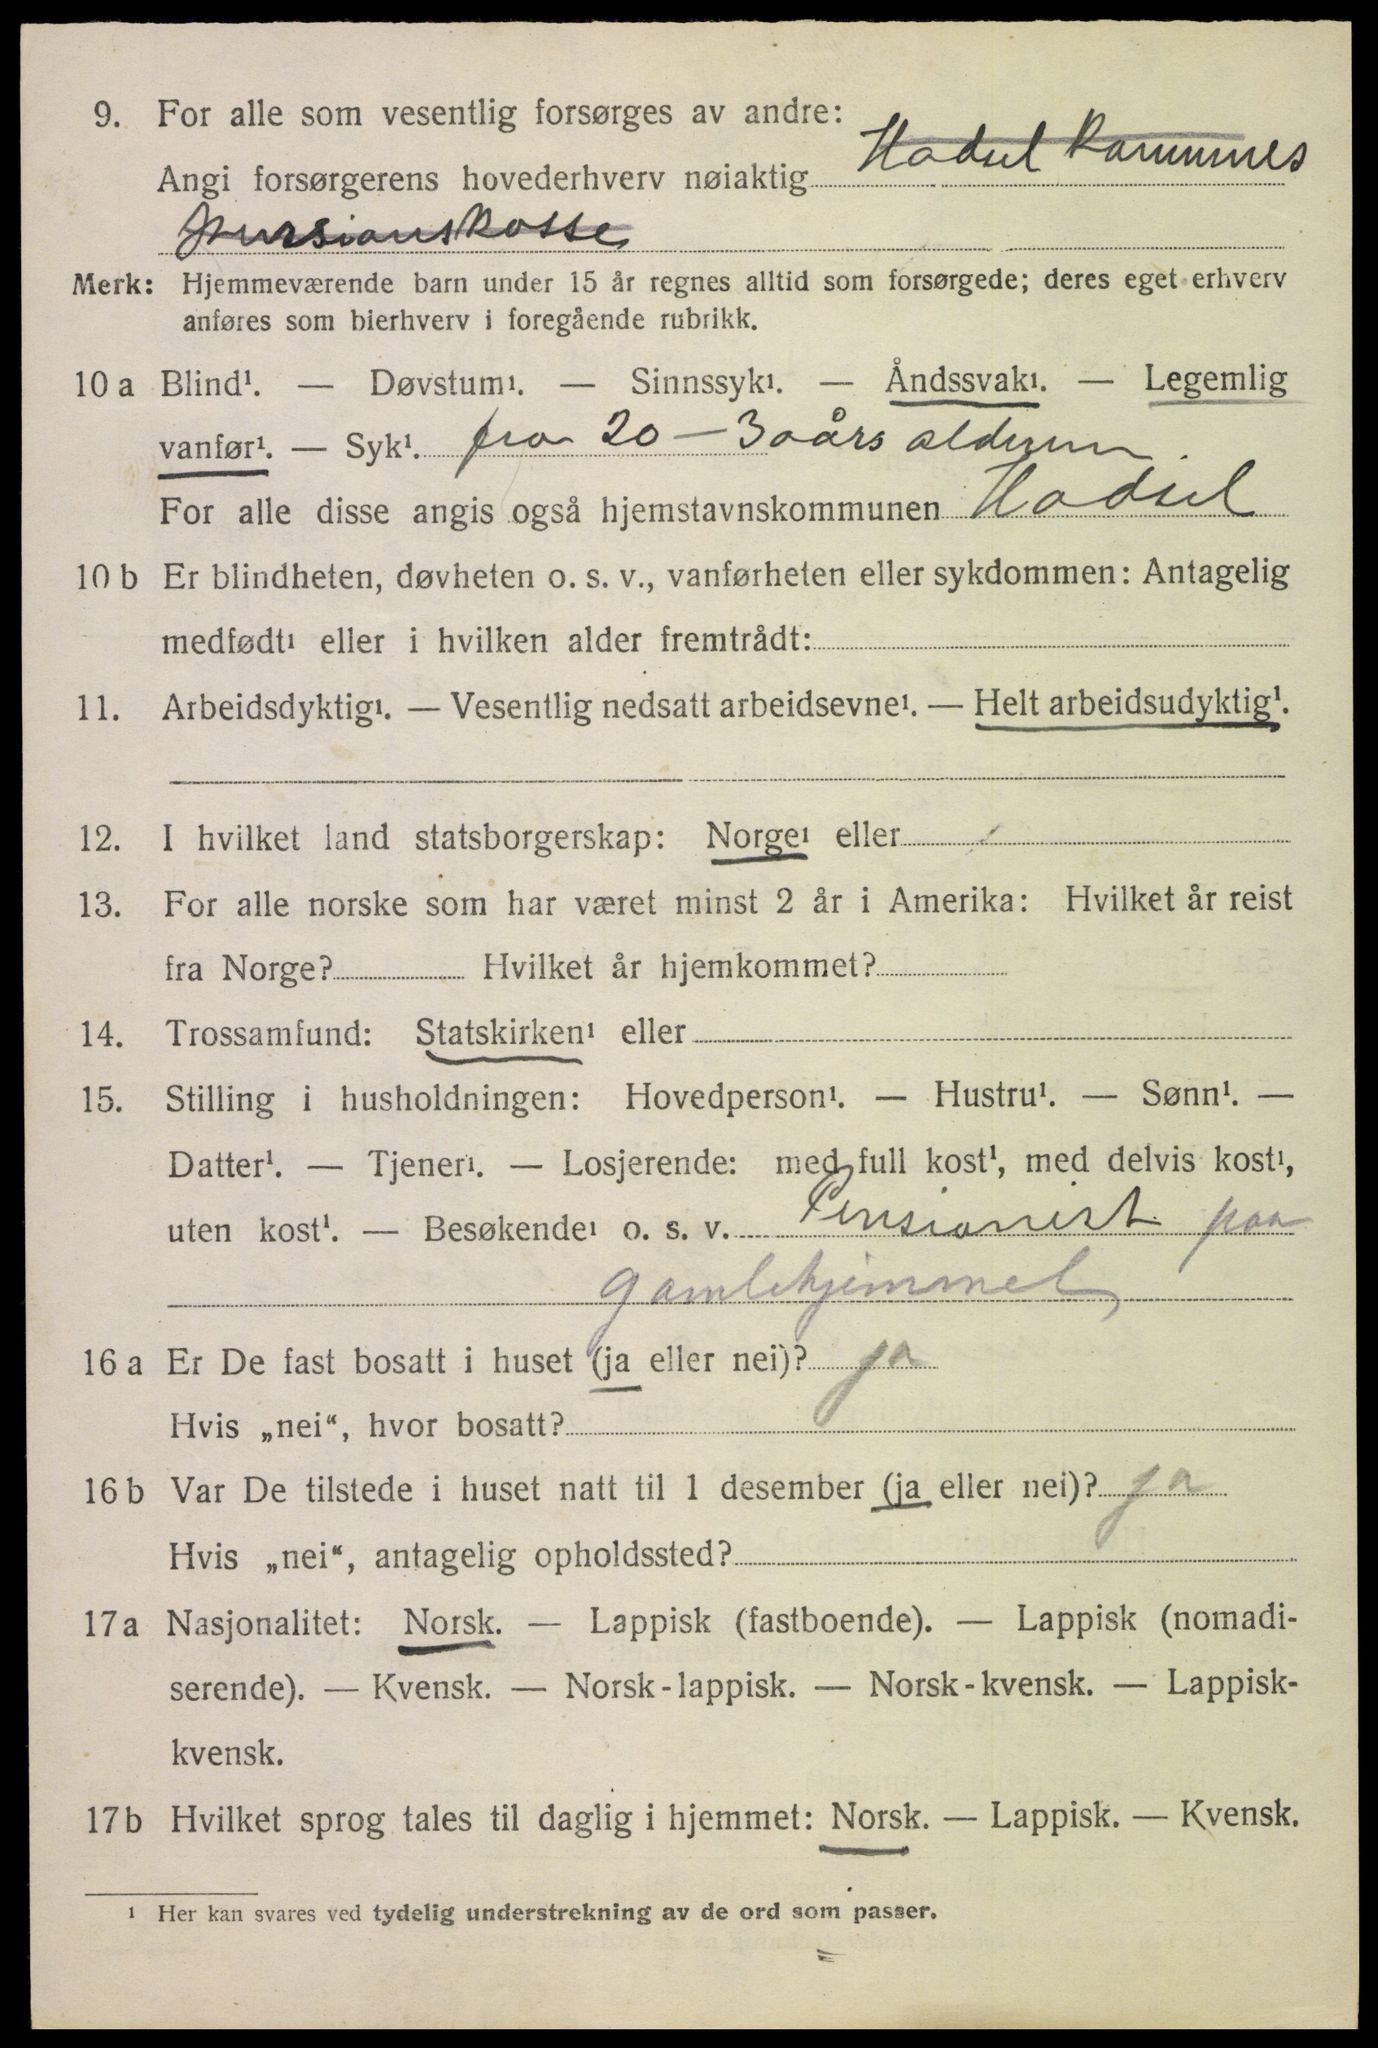 9. For alle som vesentlig forsørges av andre:
Angi forsørgerens hovederhverv nøiaktig Hadsel Kommunes
Pursionskasse
Merk: Hjemmeværende barn under 15 år regnes alltid som forsørgede; deres eget erhverv
anføres som bierhverv i foregående rubrikk.
10 a Blind¹. — Døvstum¹. — Sinnssyk¹. — Åndssvak¹. — Legemlig
vanfør¹. — Syk¹. fra 20 — 30 års alderen
For alle disse angis også hjemstavnskommunen Hadsel
10 b Er blindheten, døvheten o. s. v., vanførheten eller sykdommen: Antagelig
medfødt¹ eller i hvilken alder fremtrådt:
11. Arbeidsdyktig¹. — Vesentlig nedsatt arbeidsevne¹. — Helt arbeidsudyktig¹.
12. I hvilket land statsborgerskap: Norge¹ eller
13. For alle norske som har været minst 2 år i Amerika: Hvilket år reist
fra Norge? Hvilket år hjemkommet?
14. Trossamfund: Statskirken¹ eller
15. Stilling i husholdningen: Hovedperson¹. — Hustru¹. — Sønn¹. —
Datter¹. — Tjener¹. — Losjerende: med full kost¹, med delvis kost¹,
uten kost¹. — Besøkende¹ o. s. v. Pensionist paa
gamlehjemmet
16 a Er De fast bosatt i huset (ja eller nei)? ja
Hvis „nei“, hvor bosatt?
16 b Var De tilstede i huset natt til 1 desember (ja eller nei)? ja
Hvis „nei“, antagelig opholdssted?
17 a Nasjonalitet: Norsk. — Lappisk (fastboende). — Lappisk (nomadi-
serende). — Kvensk. — Norsk-lappisk. — Norsk-kvensk. — Lappisk-
kvensk.
17 b Hvilket sprog tales til daglig i hjemmet: Norsk. — Lappisk. — Kvensk.
¹ Her kan svares ved tydelig understrekning av de ord som passer.